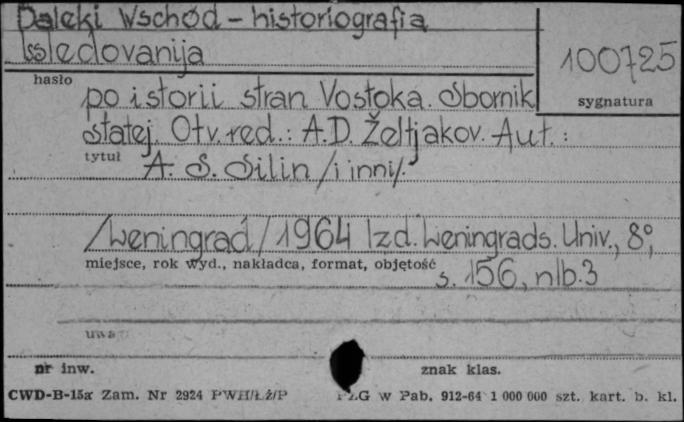 Daleki Wschód - historiografia
Issledovanija
100725
hasło
sygnatura
po istorii stran Vostoka. Sbornik
statej. Otv. red.: A.D. Želtjakov. Aut.:
tytuł
A. S. Silin /i inni/.
/Leningrad/ 1964 Izd. Leningrads. Univ., 8°,
miejsce, rok wyd., nakładca, format, objętość
s. 156, nlb. 3
uwa
nr inw.
znak klas.
CWD-B-15a Zam. Nr 2924 PWH/Łż/P
PZG w Pab. 912-64 1 000 000 szt. kart. b. kl.